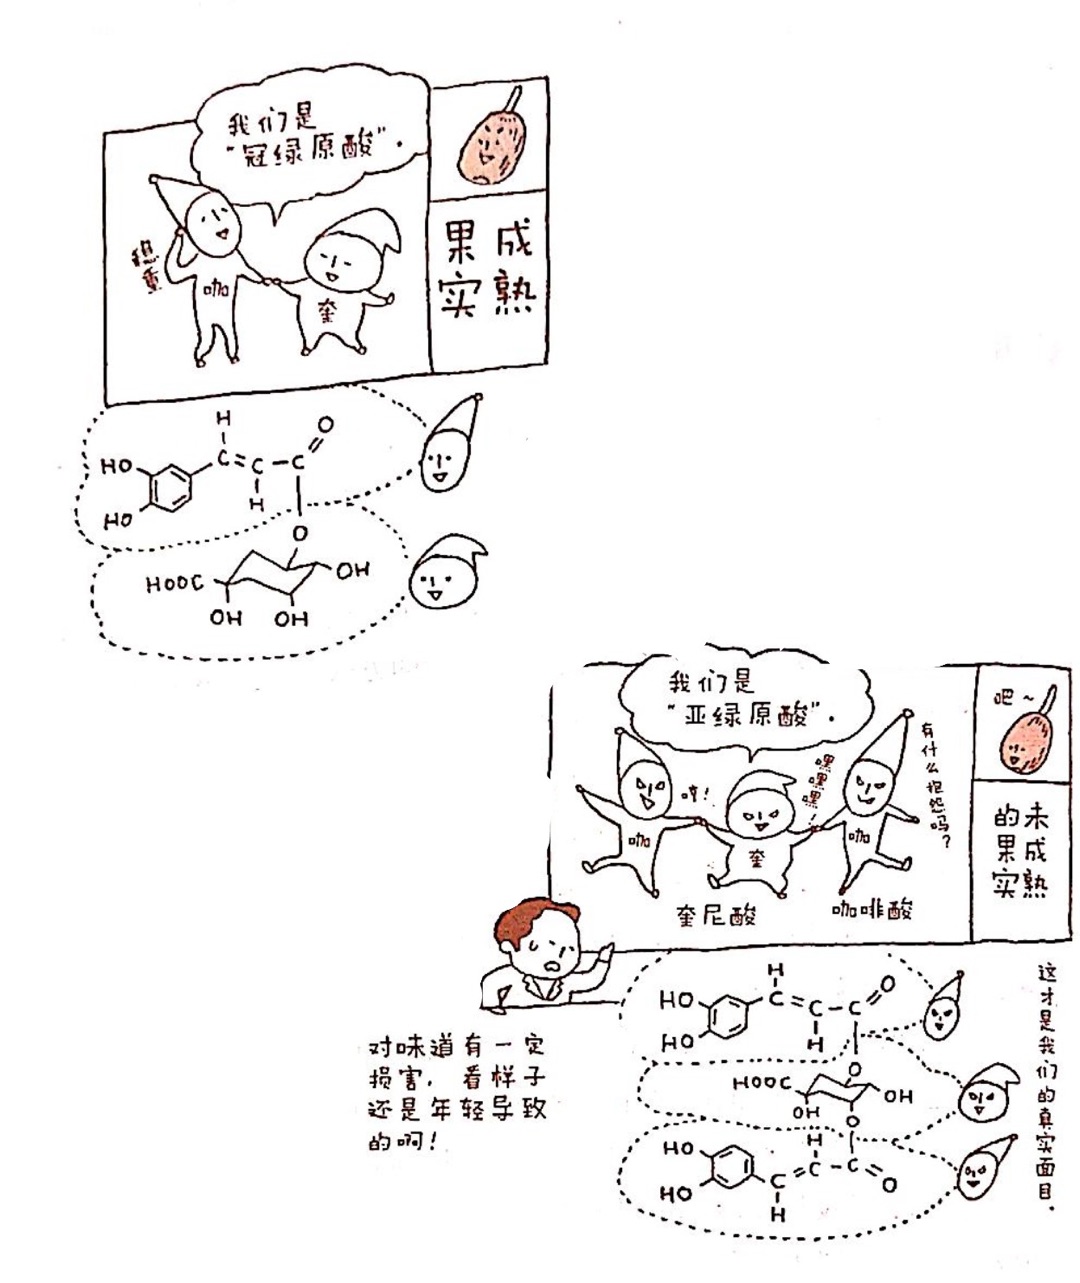 我们是
“冠绿原酸”.
稳重
咖
奎
成熟
果实
H
O
HO
C=C-C
H
HO
O
HOOC
OH
OH
OH
我们是
“亚绿原酸”.
吧~
有什么抱怨吗?
嘿嘿嘿!
哼!
咖
奎
咖
奎尼酸
咖啡酸
未成熟
的果实
对味道有一定
损害,看样子
还是年轻导致
的啊!
这才是我们的真实面目.
H
HO
C=C-C
O
HO
H
O
HOOC
OH
OH
O
H
HO
C=C-C
O
HO
H